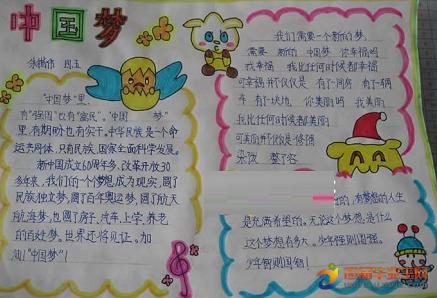 中国梦
余姚市 周玉
"中国梦"里,
有"强国"也有"富民"。"中国 梦"
里,有期盼也有实干。中华民族是一个命
运共同体,只有民族、国家全面科学发展。
新中国成立60周年多,改革开放30
多年来,我们的一个个梦想成为现实,圆了
民族独立梦,圆了百年奥运梦,圆了航天
航海梦,也圆了房子、汽车、上学、养老
的百姓梦。世界还将见证。加
油!"中国梦"!
我们需要一个新的梦,
需要 新的 中国梦 你幸福吗
我幸福 我比任何时候都幸福
可幸福并不仅仅是 有了一间房 有了一辆
车 有了一块地 你美丽吗 我美丽
我比任何时候都美丽
可美丽并不仅仅是修饰
染发 整了容
的,有梦想的人生
是充满希望的。无论这个梦想是什么
这个梦想有多大。少年强则国强。
少年强则国强!